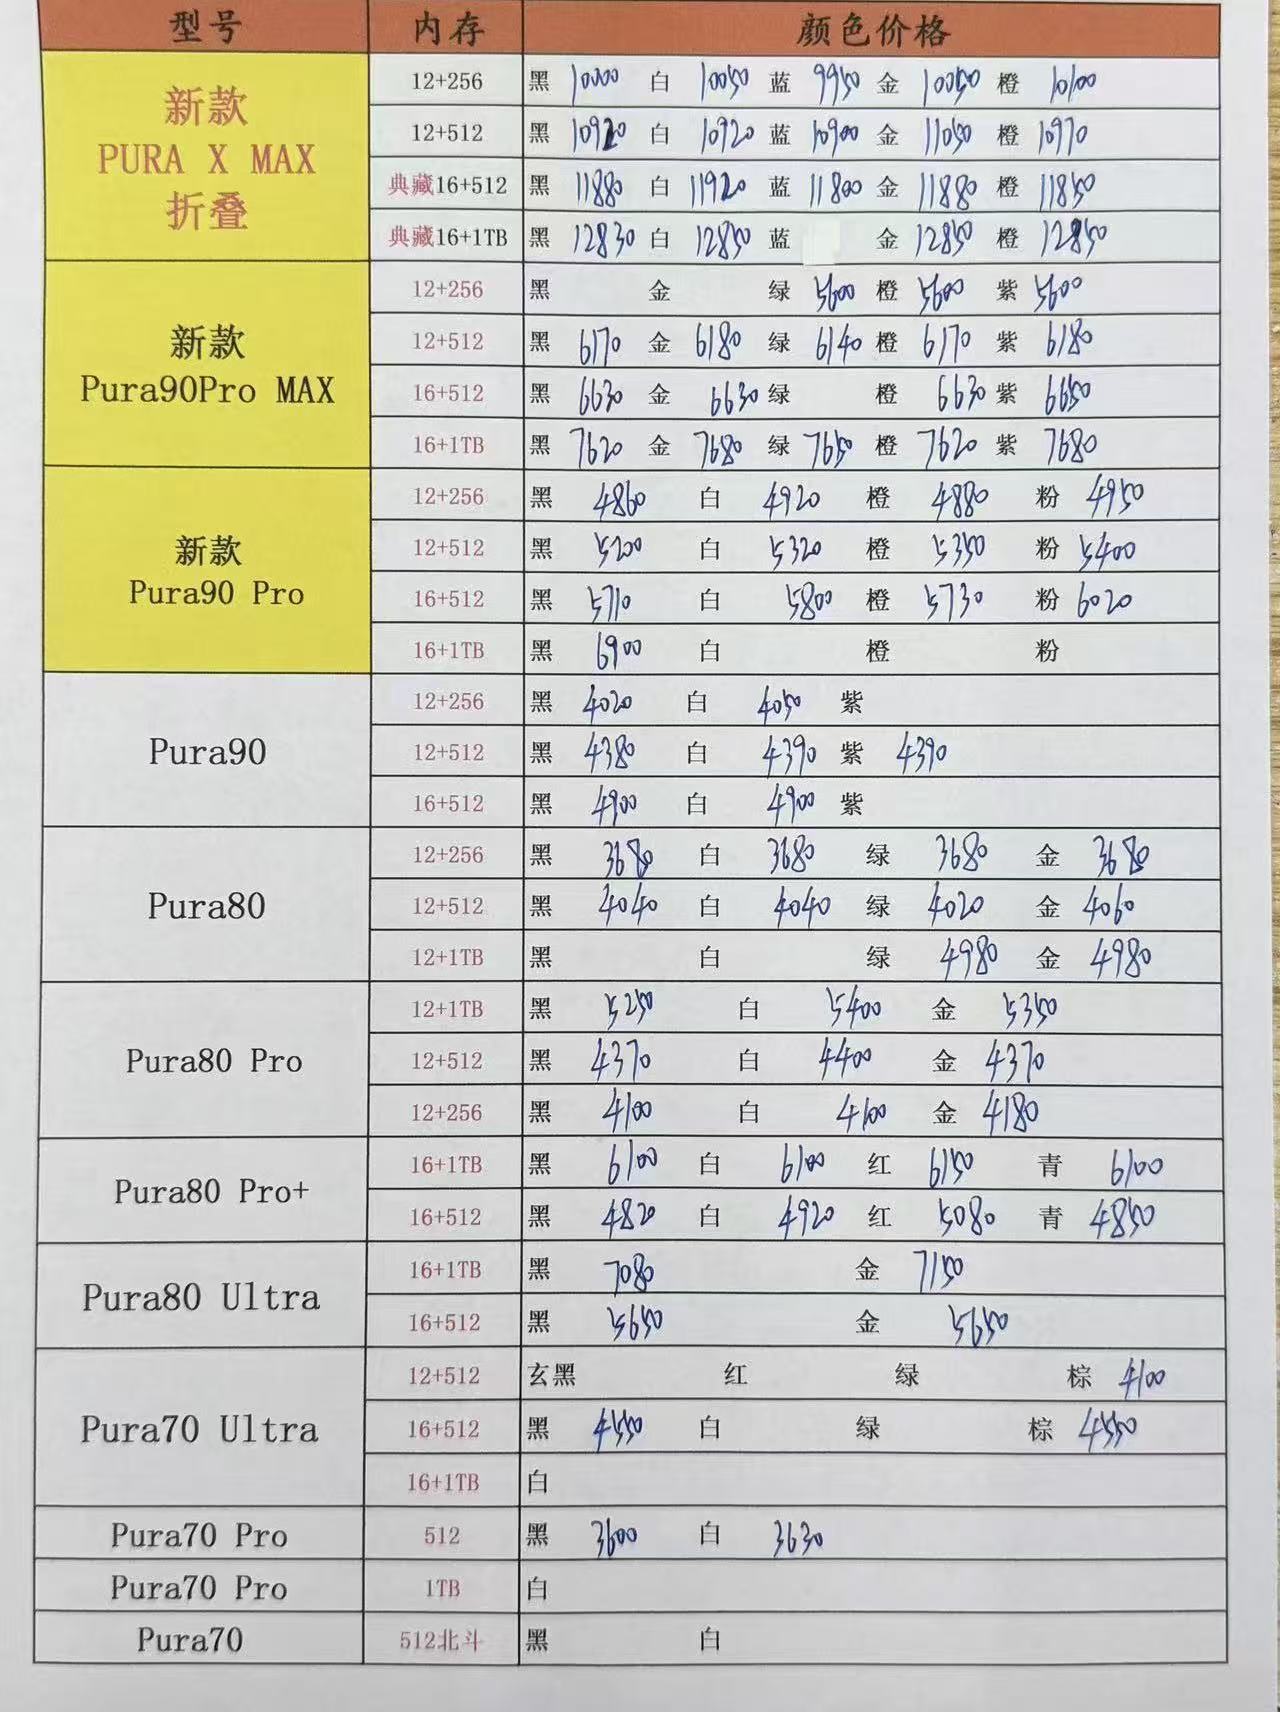 型号 内存 颜色价格
新款 PURA X MAX 折叠
12+256 黑 10000 白 10050 蓝 9950 金 10050 橙 10100
12+512 黑 10920 白 10920 蓝 10900 金 11050 橙 10970
典藏16+512 黑 11880 白 11920 蓝 11800 金 11880 橙 11850
典藏16+1TB 黑 12830 白 12850 蓝 金 12850 橙 12850
新款 Pura90Pro MAX
12+256 黑 金 绿 5600 橙 5600 紫 5600
12+512 黑 6170 金 6180 绿 6140 橙 6170 紫 6180
16+512 黑 6630 金 6630 绿 橙 6630 紫 6650
16+1TB 黑 7620 金 7680 绿 7650 橙 7620 紫 7680
新款 Pura90 Pro
12+256 黑 4860 白 4920 橙 4880 粉 4950
12+512 黑 5200 白 5320 橙 5350 粉 5400
16+512 黑 5710 白 5800 橙 5730 粉 6020
16+1TB 黑 6900 白 橙 粉
Pura90
12+256 黑 4020 白 4050 紫
12+512 黑 4380 白 4390 紫 4390
16+512 黑 4900 白 4900 紫
Pura80
12+256 黑 3680 白 3680 绿 3680 金 3680
12+512 黑 4040 白 4040 绿 4020 金 4060
12+1TB 黑 白 绿 4980 金 4980
Pura80 Pro
12+1TB 黑 5250 白 5400 金 5350
12+512 黑 4370 白 4400 金 4370
12+256 黑 4100 白 4100 金 4180
Pura80 Pro+
16+1TB 黑 6100 白 6100 红 6150 青 6100
16+512 黑 4820 白 4920 红 5080 青 4850
Pura80 Ultra
16+1TB 黑 7080 金 7150
16+512 黑 5650 金 5650
Pura70 Ultra
12+512 玄黑 红 绿 棕 4100
16+512 黑 4550 白 绿 棕 4550
16+1TB 白
Pura70 Pro 512 黑 3600 白 3630
Pura70 Pro 1TB 白
Pura70 512北斗 黑 白